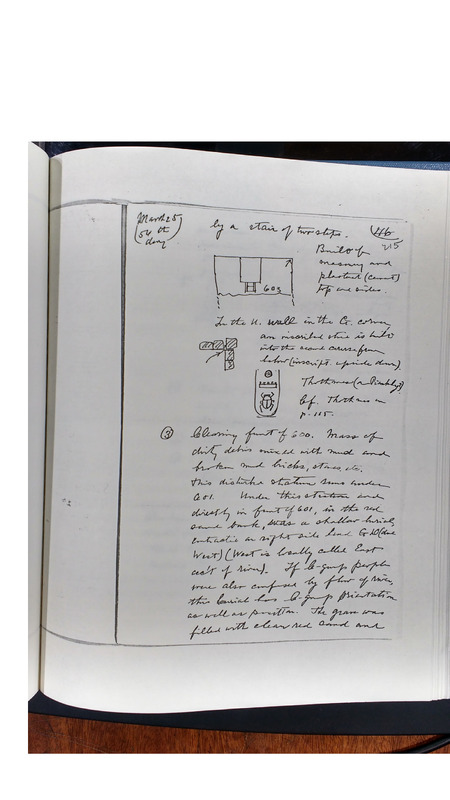 March 25
54 th
day
by a stair of two steps.
46
215
Built of
masonry and
plastered (cement)
top and sides.
603
In the N. wall in the Cr. corner
an inscribed stone is built
into the second course from
below (inscript. upside down).
Thothmes (a Disables)
Cf. Thothmes on
p. 115.
③ Clearing front of 600. Mass of
dirty debris mixed with mud and
broken mud bricks, stones, etc.
This disturbed stratum runs under
601. Under this stratum and
directly in front of 601, in the red
sand bank, was a shallow burial,
contracted on right side head (due
West) (West is locally called East
acc't of river). If C-group people
were also confused by flow of river,
this burial has C-group orientation
as well as position. The grave was
filled with clean red sand and